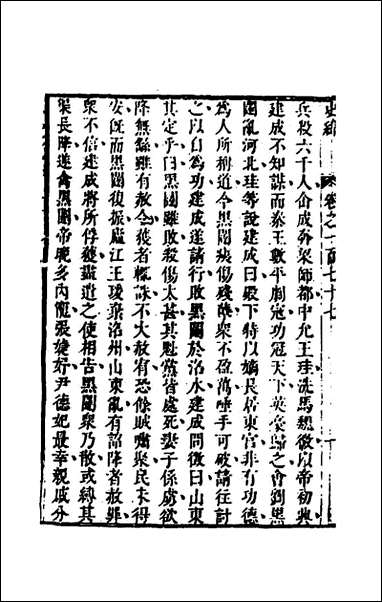 史緯 卷之一百七十七
兵殺六千人會成外梁師都中允王珪洗馬魏徵以帝初興
建成不知謀而秦王數平劇寇功冠天下英豪歸之會劉黑
闥亂河北珪等說建成曰殿下特以嫡長居東宮非有功德
為人所稱道今黑闥痍傷殘孽衆不盈萬唾手可破請往討
之以自為功建成遂請行敗黑闥於洛水建成問徵曰山東
其定乎曰黑闥雖敗殺傷太甚其魁黨皆處死妻子係虜欲
降無繇雖有赦令獲者輒誅不大赦宥恐餘賊嘯聚民未得
安既而黑闥復振廬江王瑗棄洛州山東亂有詔降者赦罪
衆不信建成將所俘獲盡遣之使相告黑闥衆乃散或縛其
渠長降遂禽黑闥帝晚多內寵張婕妤尹德妃最幸親戚分